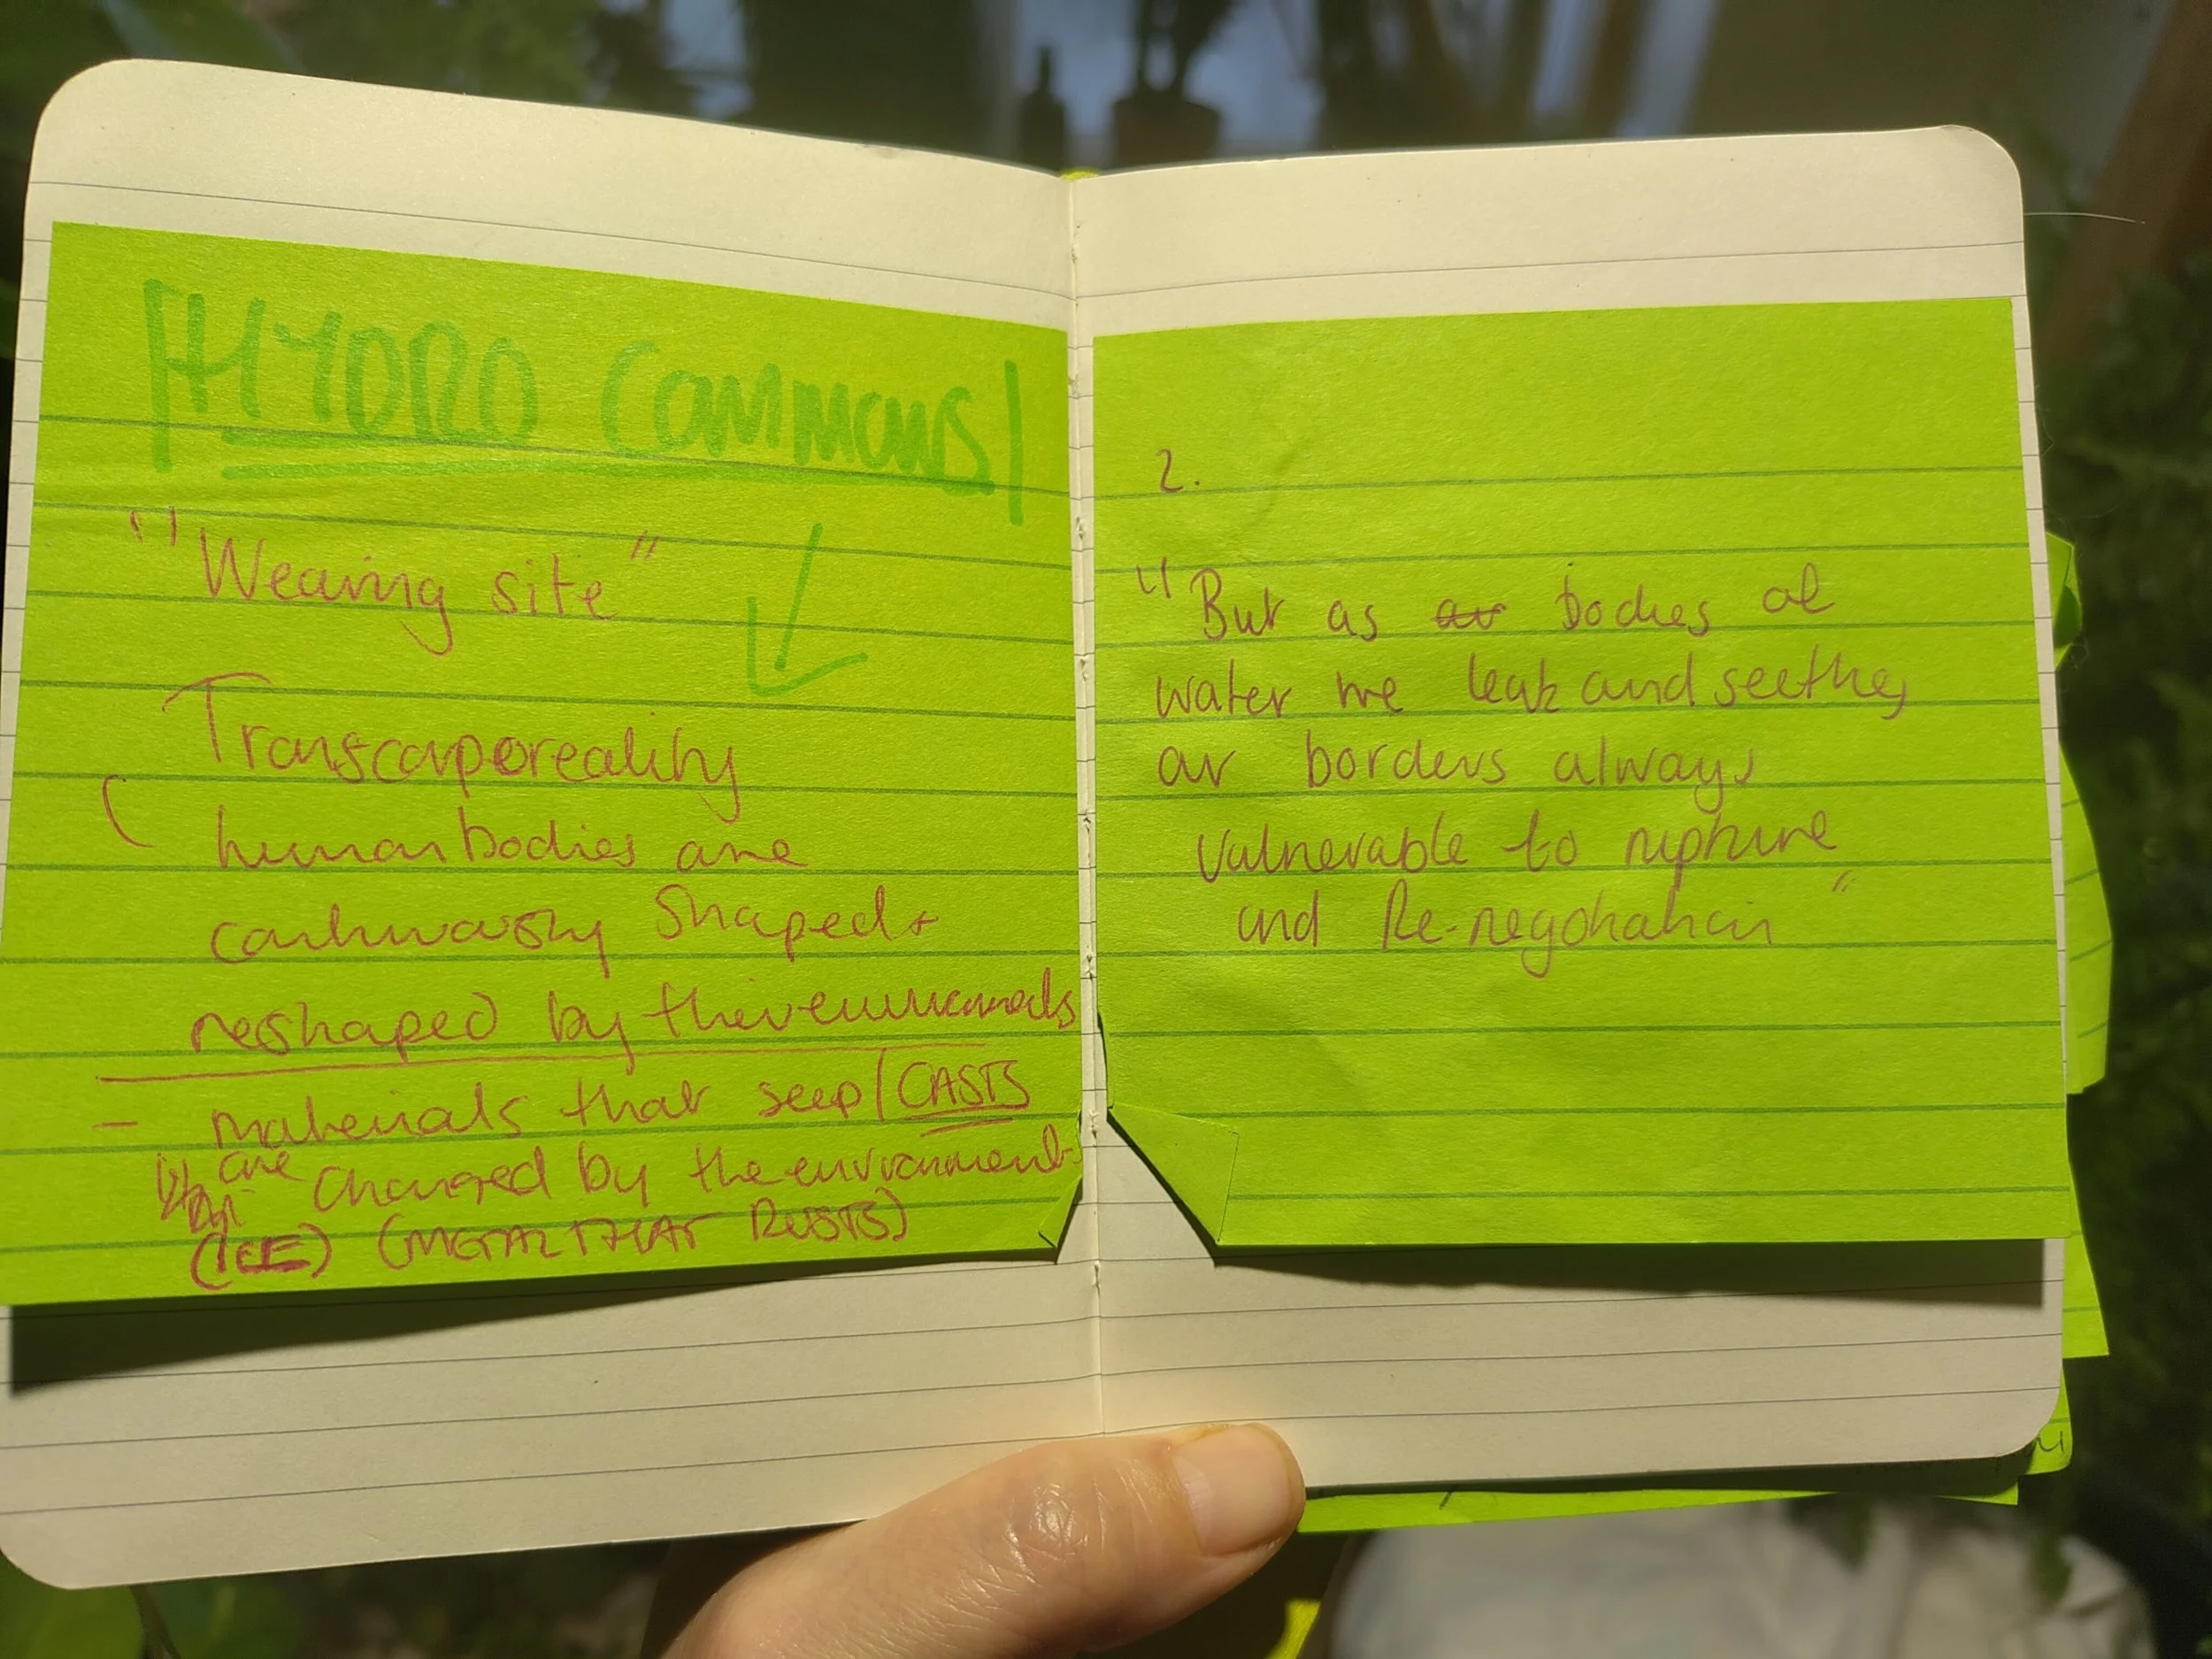 HYDRO COMMONS
"Weaving site"
Transcorporeality
( human bodies are
continuously shaped +
reshaped by their environments
- materials that seep / CASTS
are changed by the environment
(ICE) (METAL THAT RUSTS)
2.
"But as bodies of
water we leak and seethe,
our borders always
vulnerable to rupture
and Re-negotiation"